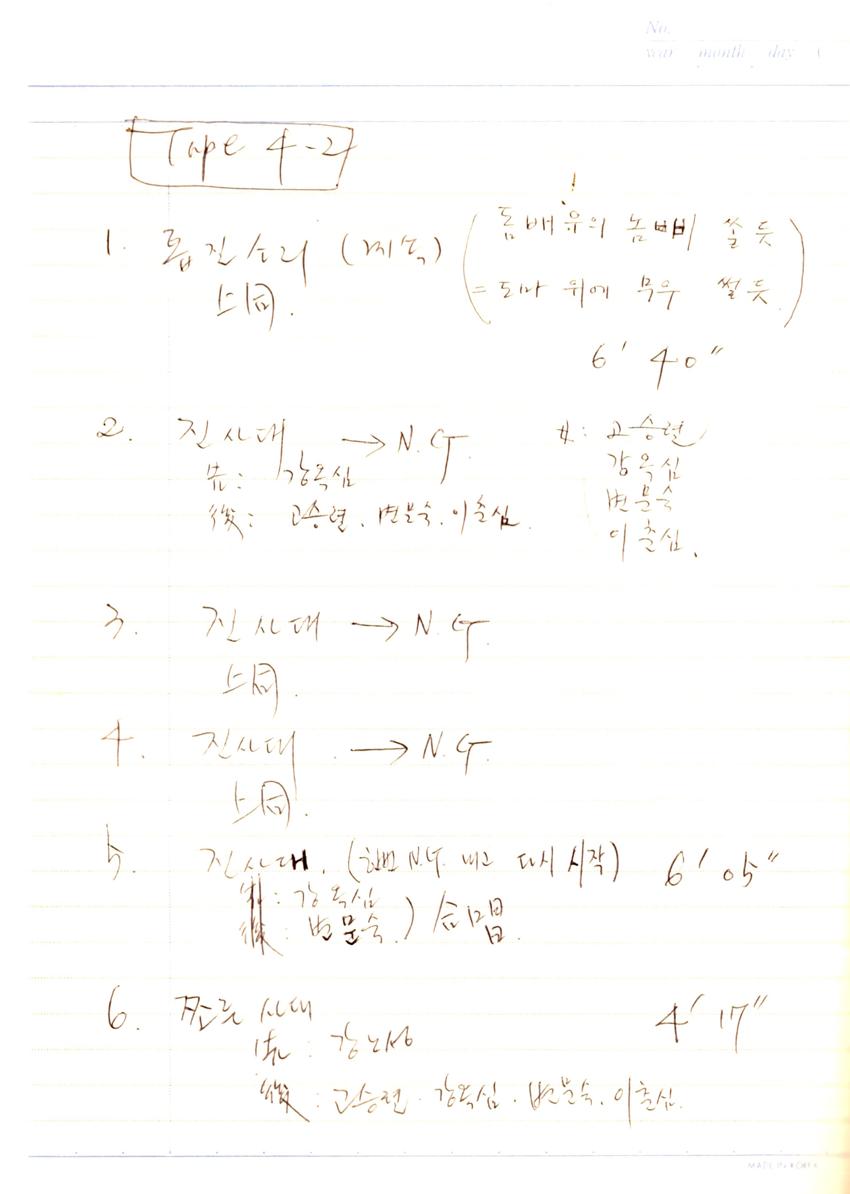 No.
year month day
Tape 4-2
1. 홉진소리 (계속) (돔배우의 놈삐 쏠 듯
= 도마 위에 무우 썰 듯)
스同.
6′ 40″
2. 진사대 → N.G.
先: 강옥심
後: 고승련. 변문숙. 이춘심.
女: 고승련
강옥심
변문숙
이춘심.
3. 진사대 → N.G.
스同.
4. 진사대 → N.G.
스同.
5. 진사대. (한번 N.G. 내고 다시 시작) 6′ 05″
강옥심
변문숙.) 合唱.
6. 사대 4′ 17″
先:
後: 고승련. 강옥심. 변문숙. 이춘심.
MADE IN KOREA